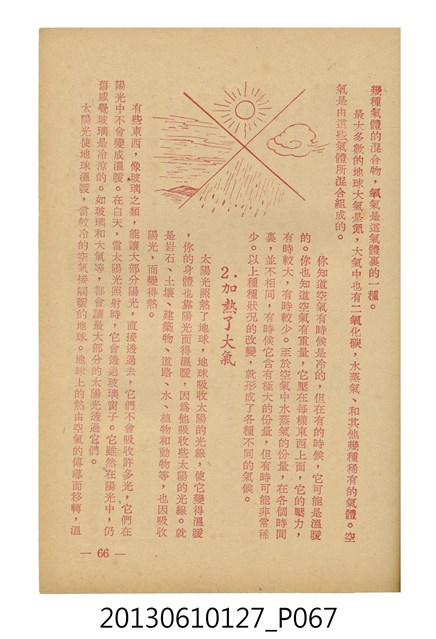 幾種氣體的混合物，氧氣是這氣體裏的一種。
最大多數的地球大氣是氮，大氣中也有二氧化碳，水蒸氣、和其他幾種稀有的氣體。空
氣是由這些氣體所混合組成的。
你知道空氣有時候是冷的，但在有的時候，它可能是溫暖
的。你也知道空氣有重量，它壓在每種東西上面，它的壓力，
有時較大，有時較少。至於空氣中水蒸氣的份量，在各個時間
裏，並不相同，有時候它含有極大的份量，但有時可能非常稀
少。以上種種狀況的改變，就形成了各種不同的氣候。
2.加熱了大氣
太陽光照熱了地球，地球吸收太陽的光線，使它變得溫暖
，你的身體也靠陽光而得溫暖，因為他吸收些太陽的光線。就
是岩石、土壤、建築物、道路、水、植物和動物等，也因吸收
陽光，而變得熱。
有些東西，像玻璃之類，能讓大部分陽光，直接透過去，它們不會吸收許多光，它們在
陽光中不會變成溫暖。在白天，當太陽光照射時，它會透過玻璃窗子。它雖然在陽光中，仍
舊感覺玻璃是冷涼的。如玻璃和大氣等，都會讓最大部分的太陽光透過它們。
太陽光使地球溫暖，當較冷的空氣接觸暖的地球。地球上的熱由空氣的傳導而移轉，溫
— 66 —
20130610127_P067